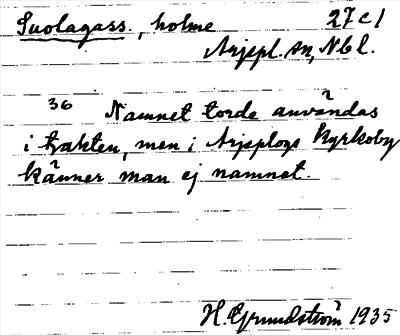 Suolagass, holme 27 c 1
Arjepl. sn, Nbl.
36 Namnet torde användas
i trakten, men i Arjeplogs Kyrkoby
känner man ej namnet.
H. Grundström 1935